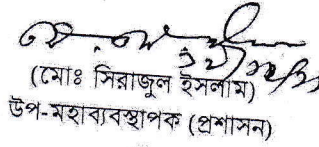 (মোঃ সিরাজুল ইসলাম)
উপ-মহাব্যবস্থাপক (প্রশাসন)